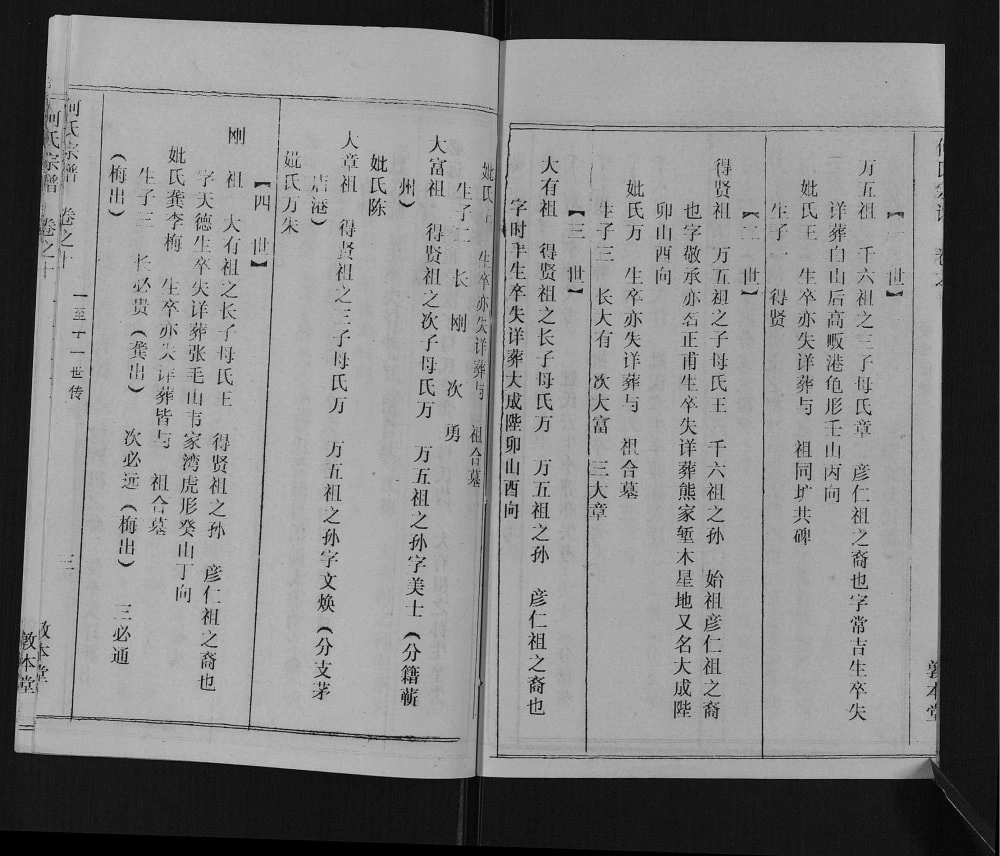 【一 世】
万五祖 千六祖之三子母氏章 彦仁祖之裔也字常吉生卒失
详葬白山后高畈港龟形壬山丙向
妣氏王 生卒亦失详葬与 祖同圹共碑
生子一 得贤
【二 世】
得贤祖 万五祖之子母氏王 千六祖之孙 始祖彦仁祖之裔
也字敬承亦名正甫生卒失详葬熊家堑木星地又名大成陛
卯山酉向
妣氏万 生卒亦失详葬与 祖合墓
生子三 长大有 次大富 三大章
【三 世】
大有祖 得贤祖之长子母氏万 万五祖之孙 彦仁祖之裔也
字时丰生卒失详葬大成陛卯山酉向
敦本堂
妣氏 生卒亦失详葬与 祖合墓
生子二 长 刚 次 勇
大富祖 得贤祖之次子母氏万 万五祖之孙字美士（分籍蕲
州）
妣氏陈
大章祖 得贤祖之三子母氏万 万五祖之孙字文焕（分支茅
店港）
妣氏万朱
【四 世】
刚 祖 大有祖之长子母氏王 得贤祖之孙 彦仁祖之裔也
字天德生卒失详葬张毛山韦家湾虎形癸山丁向
妣氏龚李梅 生卒亦失详葬皆与 祖合墓
生子三 长必贵（龚出） 次必远（梅出） 三必通
（梅出）
何氏宗谱 卷之十 一至十一世传 三 敦本堂
何氏宗谱 卷之十 敦本堂